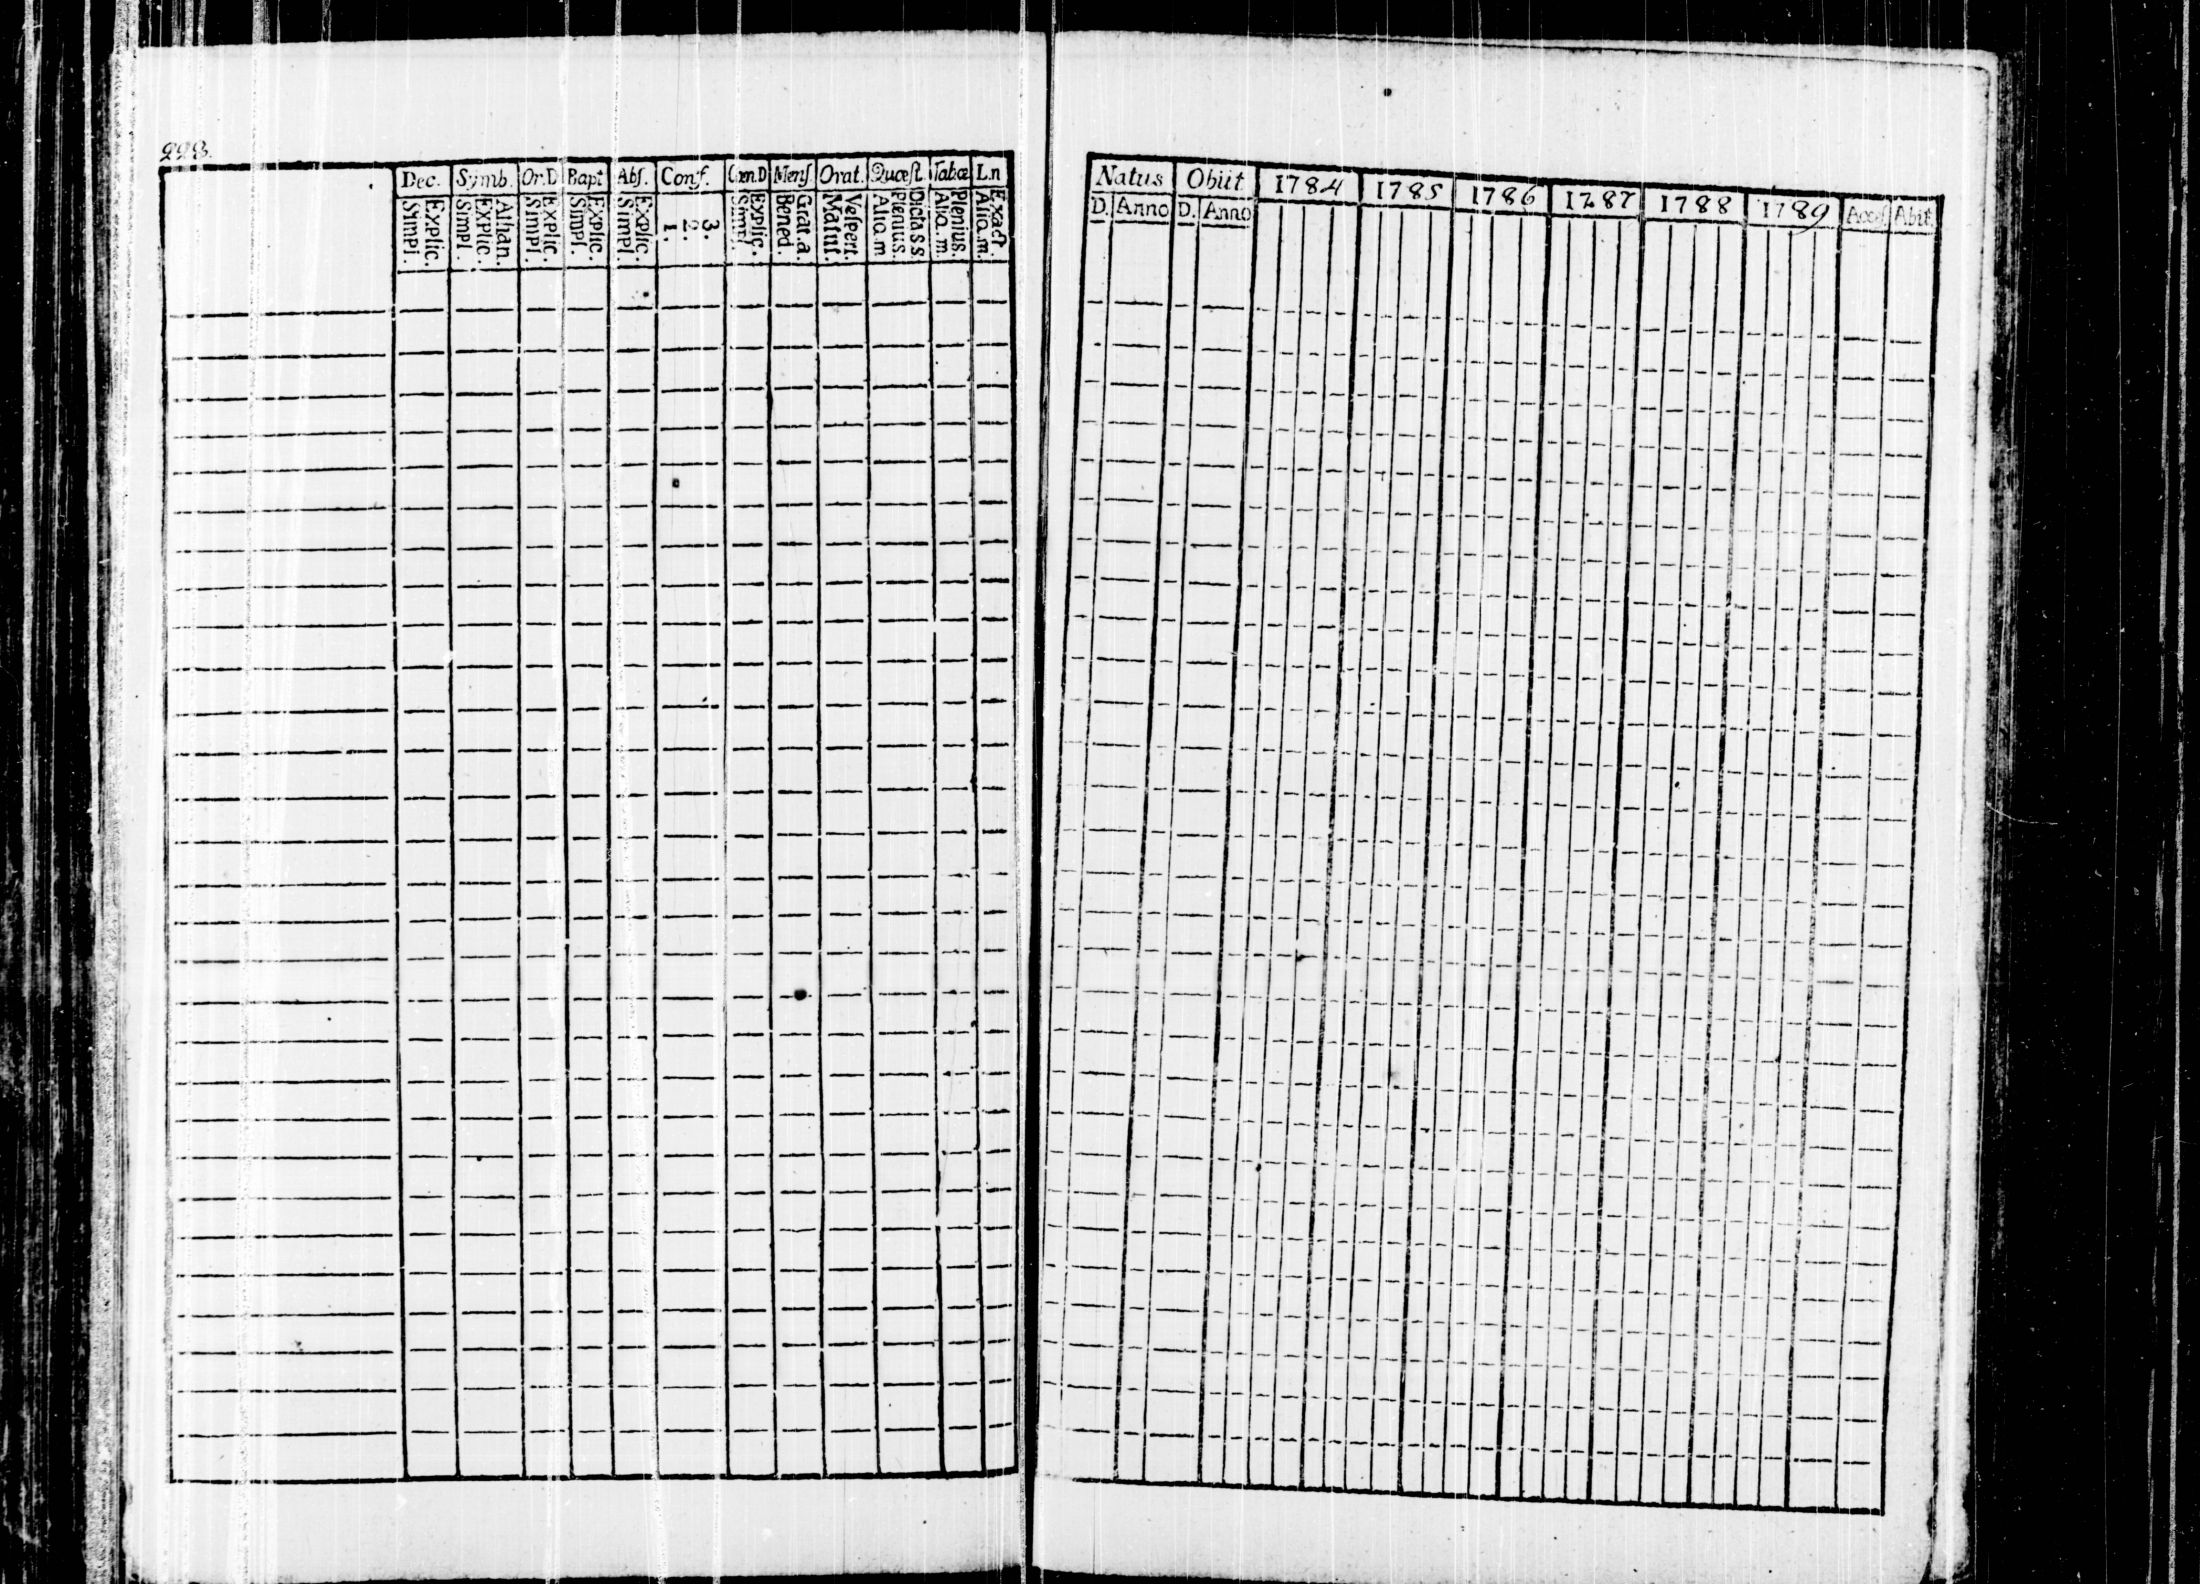 228.
Dec. Symb. Or.D Bapt Abs. Conf. Cœn.D Mens Orat. Quæst. Tabæ L.n
Simpl. Explic. Simpl. Explic. Athan. Simpl. Explic. Simpl. Explic. Simpl. Explic. 1. 2. 3. Simpl. Explic. Bened. Grat.a. Matut. Vespert. Aliq.m Plenius. Dicta s s Aliq.m. Plenius. Aliq.m. Exact.
Natus Obiit 1784 1785 1786 1787 1788 1789 Acces Abit
D. Anno D. Anno